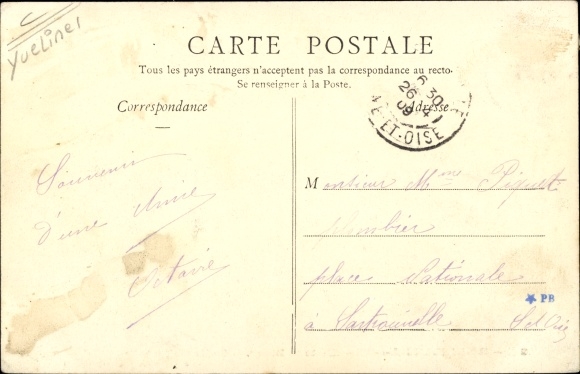 Yvelines
CARTE POSTALE
Tous les pays étrangers n'acceptent pas la correspondance au recto.
Se renseigner à la Poste.
Correspondance
Adresse
6 30
26 -4
09
NE-ET-OISE
Souvenir
d'une Amie
Octavie
Monsieur Mme Piquet
plombier
place Nationale
à Sartrouville S et Oise
PB